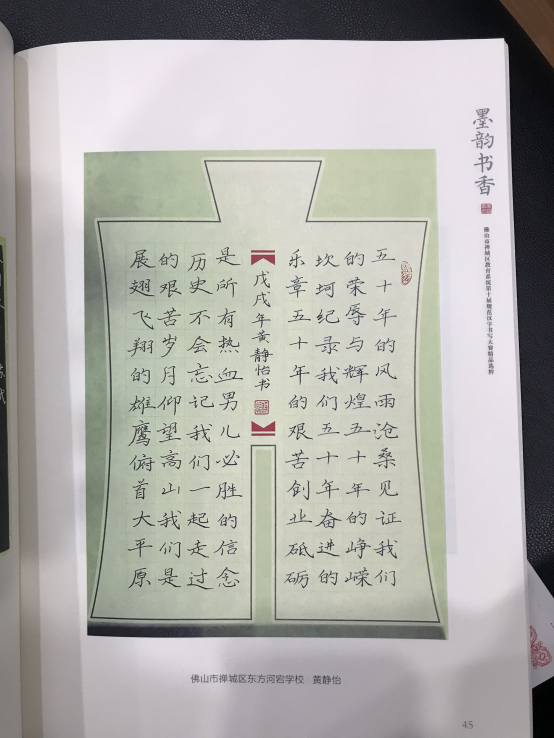 墨韵书香
佛山市禅城区教育系统第十届规范汉字书写大赛精品选粹
五十年的风雨沧桑见证我们
的荣辱与辉煌五十年的峥嵘
坎坷纪录我们五十年奋进的
乐章五十年的艰苦创业砥砺
戊戌年黄静怡书
是所有热血男儿必胜的信念
历史不会忘记我们一起走过
的艰苦岁月仰望高山我们是
展翅飞翔的雄鹰俯首大平原
佛山市禅城区东方河宕学校 黄静怡
45